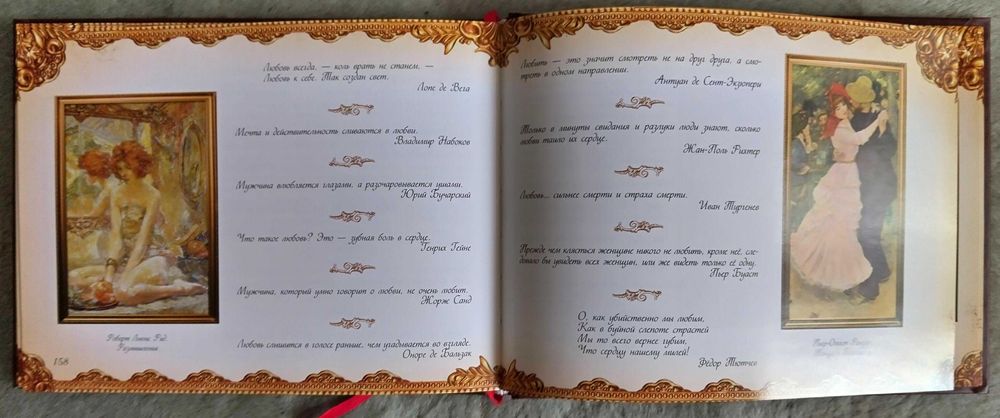 Любовь всегда, — коль врать не станем, —
Любовь к себе. Так создан свет.
Лопе де Вега
Мечта и действительность сливаются в любви.
Владимир Набоков
Мужчина влюбляется глазами, а разочаровывается ушами.
Юрий Бучарский
Что такое любовь? Это — зубная боль в сердце.
Генрих Гейне
Мужчина, который умно говорит о любви, не очень любит.
Жорж Санд
Любовь слышится в голосе раньше, чем угадывается во взгляде.
Оноре де Бальзак
Роберт Льюис Рид.
Размышления
158
Любить — это значит смотреть не на друг друга, а смо-
треть в одном направлении.
Антуан де Сент-Экзюпери
Только в минуты свидания и разлуки люди знают, сколько
любви таило их сердце.
Жан-Поль Рихтер
Любовь... сильнее смерти и страха смерти.
Иван Тургенев
Прежде чем клясться женщине никого не любить, кроме неё, сле-
довало бы увидеть всех женщин, или же видеть только её одну.
Пьер Буаст
О, как убийственно мы любим,
Как в буйной слепоте страстей
Мы то всего вернее губим,
Что сердцу нашему милей!
Фёдор Тютчев
Пьер-Огюст Ренуар.